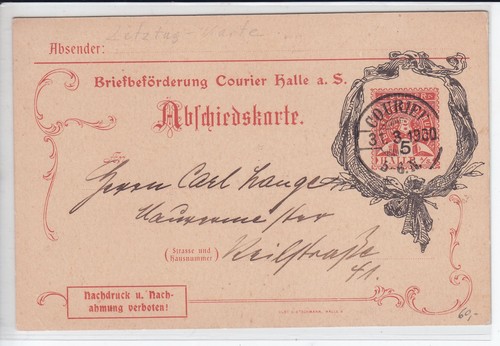 Letztag-Karte
Absender:
Briefbeförderung Courier Halle a. S.
Abschiedskarte.
COURIER
31.3.1900
5
5-6.N.
Herrn Carl Lange
Maurermeister
(Strasse und Hausnummer)
Keilstraße
41.
Nachdruck u. Nach-
ahmung verboten!
60,-